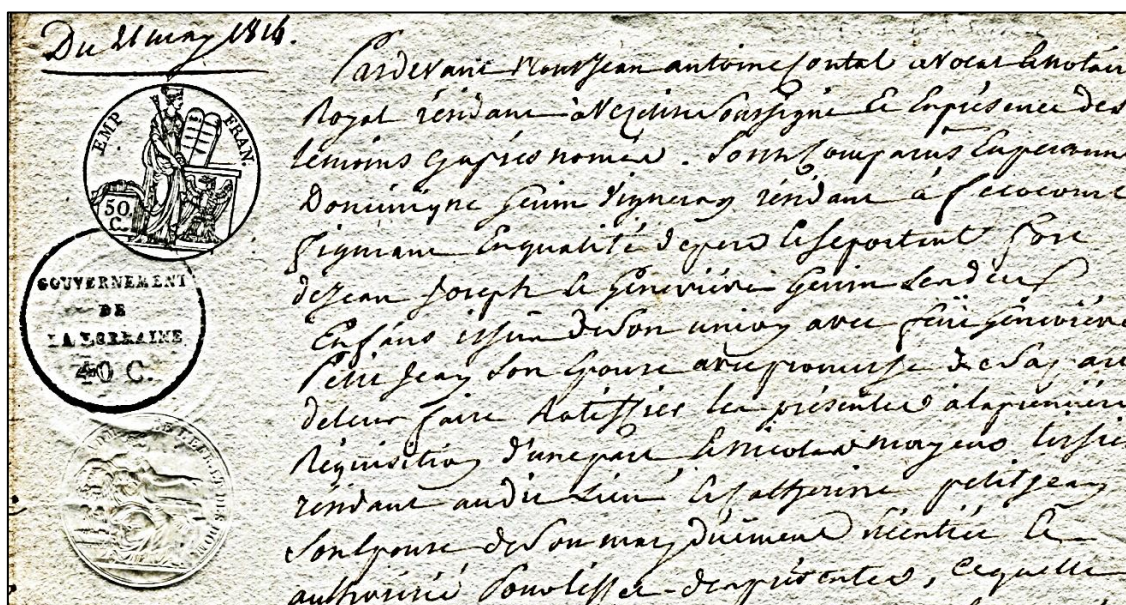 Du 21 may 1814.
EMP FRAN
50
C.
GOUVERNEMENT
DE
LA LORRAINE
40 C.
Pardevant Nous Jean antoine Contal avocat & notai
Royal résidant à Vezelise soussigné & En présence des
témoins cy après només. Sont Comparus En personne
Dominique Vigneron résidant à fecocourt
Enqualité de pere & se portent fort
de Jean Joseph & Geneviève
Enfans issus de son union avec feüe Geneviève
Petit Jean son Epouse avec promesse
de leur faire Ratiffier les présentes à la première
Réquisition d'une part & Nicolas
résidant audit Lieu & Catherine petitjean
son Epouse de son mary düement &
authorisée des présentes, Lequelle